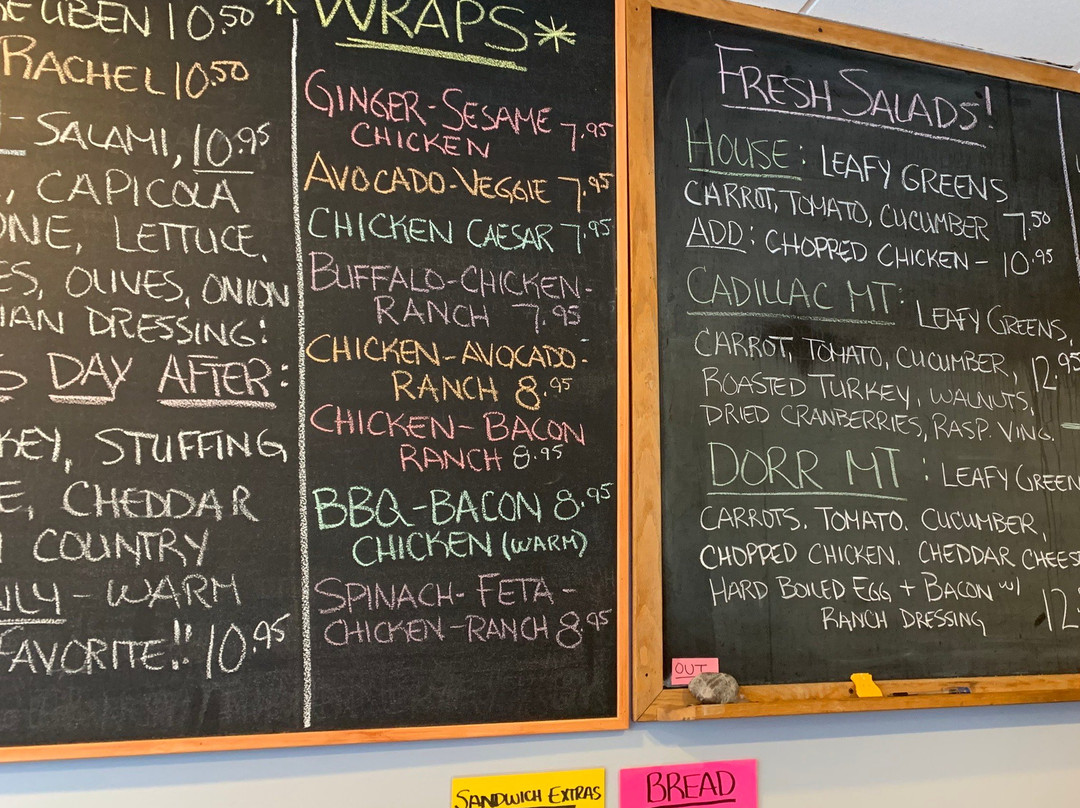 10.50
RACHEL 10.50
- SALAMI, 10.95
, CAPICOLA
LETTUCE,
OLIVES, ONION
DRESSING!
DAY AFTER:
STUFFING
CHEDDAR
COUNTRY
- WARM
FAVORITE!! 10.95
* WRAPS *
GINGER-SESAME
CHICKEN 7.95
AVOCADO-VEGGIE 7.95
CHICKEN CAESAR 7.95
BUFFALO-CHICKEN-
RANCH 7.95
CHICKEN-AVOCADO-
RANCH 8.95
CHICKEN-BACON
RANCH 8.95
BBQ-BACON 8.95
CHICKEN (WARM)
SPINACH-FETA-
CHICKEN-RANCH 8.95
FRESH SALADS!
HOUSE: LEAFY GREENS
CARROT, TOMATO, CUCUMBER 7.50
ADD: CHOPPED CHICKEN - 10.95
CADILLAC MT: LEAFY GREENS,
CARROT, TOMATO, CUCUMBER, 12.95
ROASTED TURKEY, WALNUTS,
DRIED CRANBERRIES, RASP. VING.
DORR MT: LEAFY GREEN
CARROTS, TOMATO, CUCUMBER,
CHOPPED CHICKEN, CHEDDAR CHEESE
HARD BOILED EGG + BACON w/
RANCH DRESSING 12.
OUT
SANDWICH EXTRAS
BREAD